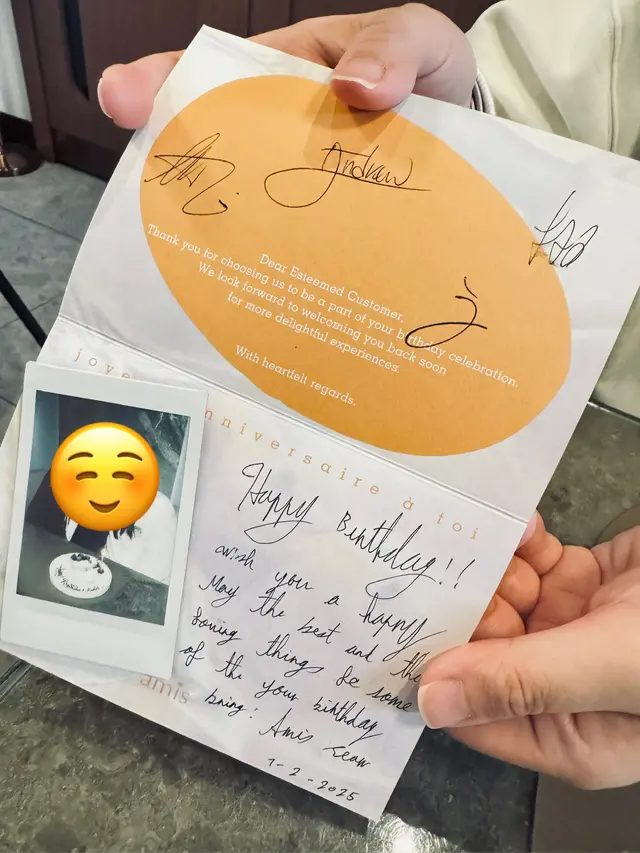 Andrew
Dear Esteemed Customer,
Thank you for choosing us to be a part of your birthday celebration.
We look forward to welcoming you back soon
for more delightful experiences.
With heartfelt regards.
joye nniversaire à toi
Happy Birthday!!
wish you a happy
May the best and the
loving things be some
of the your birthday
bring! Amis Team
1-2-2025
amis